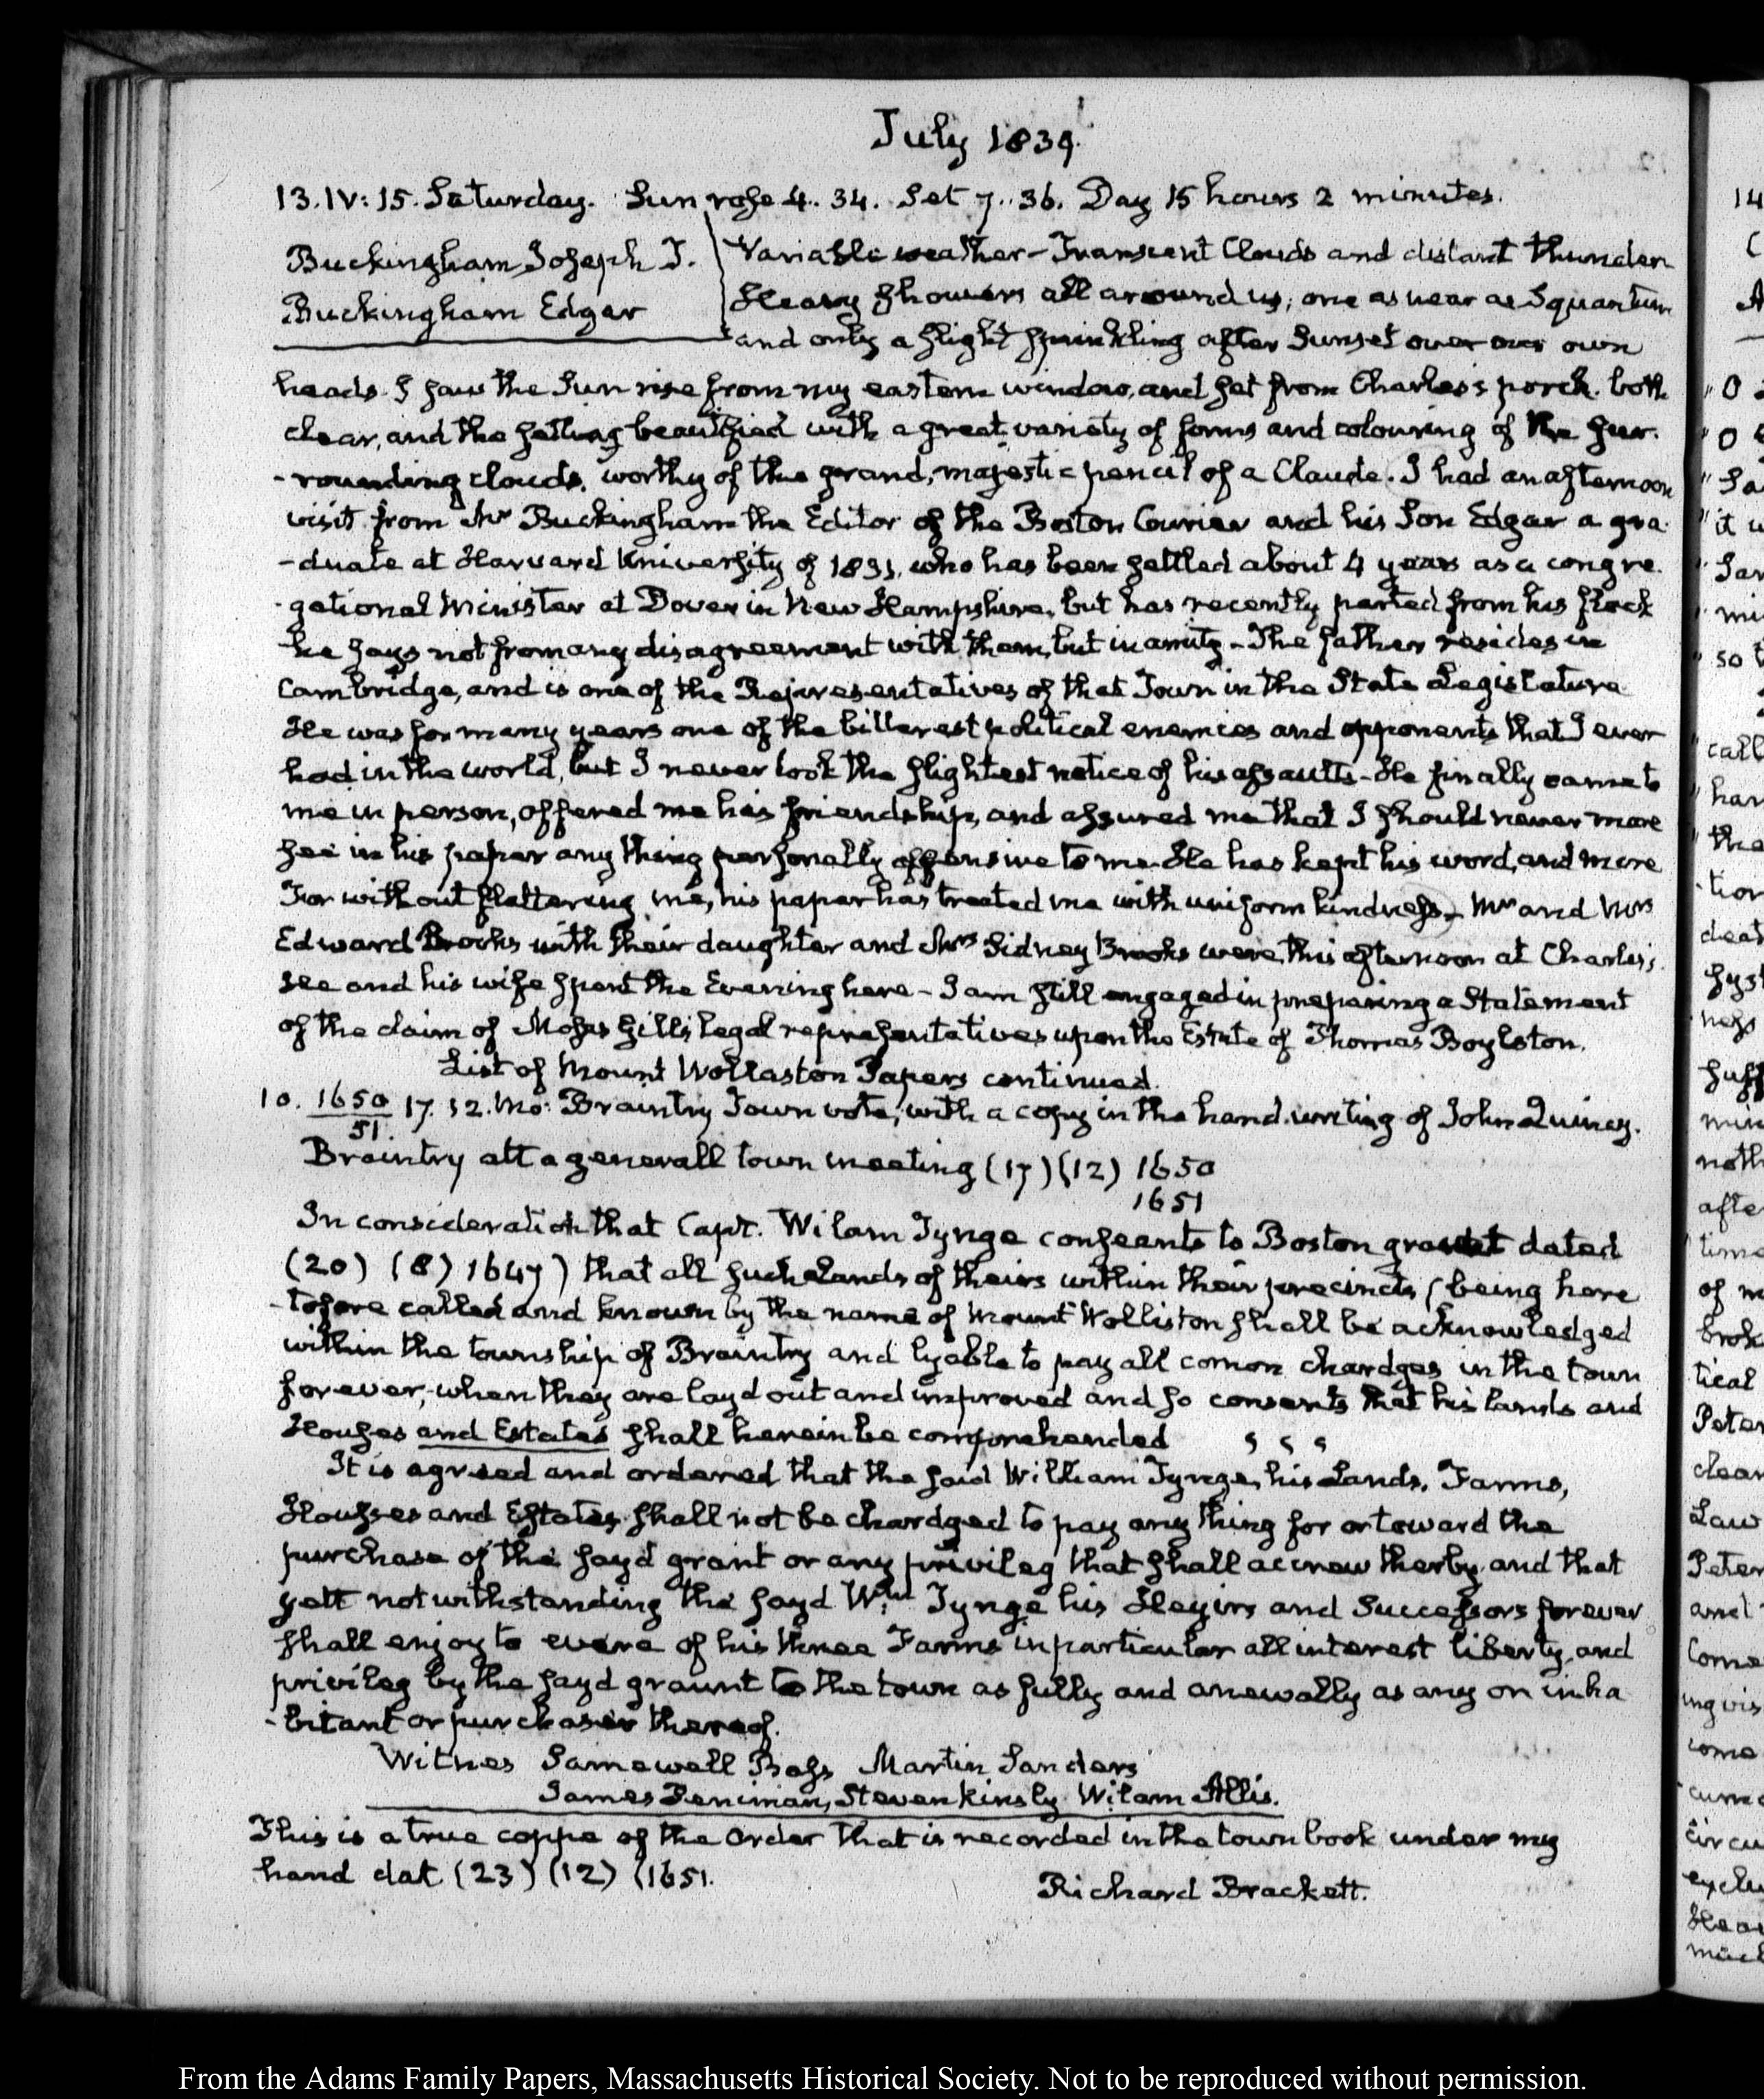 July 1839.
13. IV: 15. Saturday. Sun rose 4. 34. Set 7. 36. Day 15 hours 2 minutes.
Buckingham, Joseph T.
Buckingham Edgar
Variable weather — Transient Clouds and distant thunder
Heavy showers all around us; one as near as Squantum
and only a slight sprinkling after Sunset over our own
heads. I saw the Sun rise from my eastern window, and set from Charles's porch. both
clear, and the setting beautified with a great variety of forms and colouring of the sur-
-rounding clouds, worthy of the grand, majestic pencil of a Claude. I had an afternoon
visit from Mr Buckingham the Editor of the Boston Courier and his Son Edgar a gra-
-duate at Harvard University of 1831, who has been settled about 4 years as a congre-
-gational Minister at Dover in New Hampshire, but has recently parted from his flock
he says not from any disagreement with them, but in amity — The father resides in
Cambridge, and is one of the Representatives of that Town in the State Legislature
He was for many years one of the bitterest political enemies and opponents that I ever
had in the world, but I never took the slightest notice of his assaults — He finally came to
me in person, offered me his friendship, and assured me that I should never more
see in his paper any thing personally offensive to me. He has kept his word, and more
For without flattering me, his paper has treated me with uniform kindness — Mr and Mrs
Edward Brooks with their daughter and Mrs Sidney Brooks were this afternoon at Charles's.
He and his wife spent the Evening here — I am still engaged in preparing a Statement
of the claim of Moses Gill's legal representatives upon the Estate of Thomas Boylston.
List of Mount Wollaston Papers continued.
10. 1650/51. 17. 12. Mo: Braintry Town vote, with a copy in the hand-writing of John Quincy.
Braintry att a generall town meeting (17) (12) 1650
1651
In consideration that Capt. Wilam Tynge conseants to Boston graunt dated
(20) (8) 1647) that all such Lands of theirs within their precincts (being here
-tofore called and known by the name of Mount Wolliston shall be acknowledged
within the township of Braintry and lyable to pay all comon chardges in the town
forever, when they are layd out and improved and so consents that his lands and
Houses and Estates shall herein be comprehended
It is agreed and ordered that the said William Tynge, his Lands, Farms,
Housses and Estates shall not be chardged to pay any thing for or toward the
purchase of the sayd grant or any privileg that shall accrew therby and that
yett notwithstanding the sayd Wm Tynge his Heyirs and Successors forever
shall enjoy to evere of his three Farms in particular all interest liberty, and
privileg by the sayd graunt to the town as fully and anewally as any on inha
-bitant or purchaser thereof.
Witnes Samewell Bass Martin Sanders
James Peniman, Steven Kinsly Wilam Allis.
This is a true coppe of the Order that is recorded in the town book under my
hand dat (23) (12) (1651.
Richard Brackett.
From the Adams Family Papers, Massachusetts Historical Society. Not to be reproduced without permission.